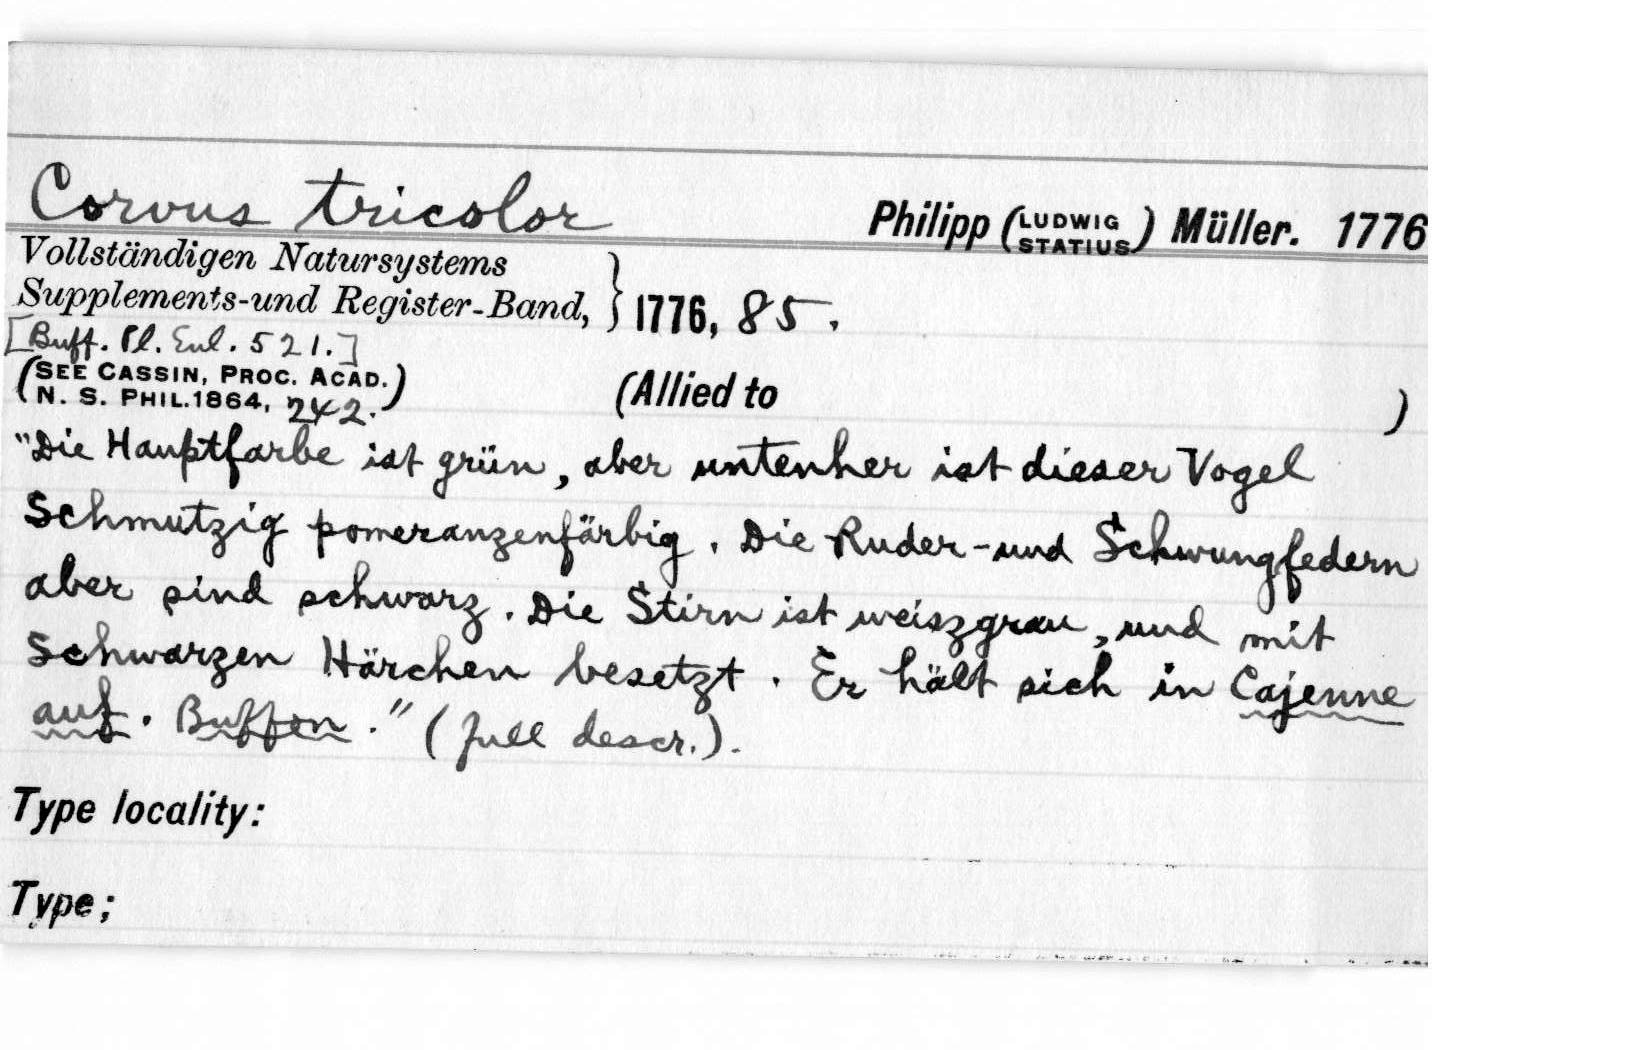 Corvus tricolor Philipp (LUDWIG STATIUS) Müller. 1776
Vollständigen Natursystems
Supplements-und Register-Band, } 1776, 85.
[Buff. Pl. Enl. 521.]
(SEE CASSIN, PROC. ACAD.
N. S. PHIL. 1864, 242.) (Allied to )
"Die Hauptfarbe ist grün, aber untenher ist dieser Vogel
Schmutzig pomeranzenfärbig. Die Ruder-und Schwungfedern
aber sind schwarz. Die Stirn ist weiszgrau, und mit
Schwarzen Härchen besetzt. Er hält sich in Cajenne
auf. Buffon." (full descr.).
Type locality:
Type;